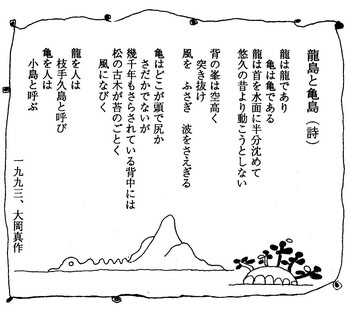 龍島と亀島（詩）
龍は龍であり
亀は亀である
龍は首を水面に半分沈めて
悠久の昔より動こうとしない
背の峯は空高く
突き抜け
風を　ふさぎ　波をさえぎる
亀はどこが頭で尻か
さだかでないが
幾千年もさらされている背中には
松の古木が苔のごとく
風になびく
龍を人は
枝手久島と呼び
亀を人は
小島と呼ぶ
一九九三、大岡真作